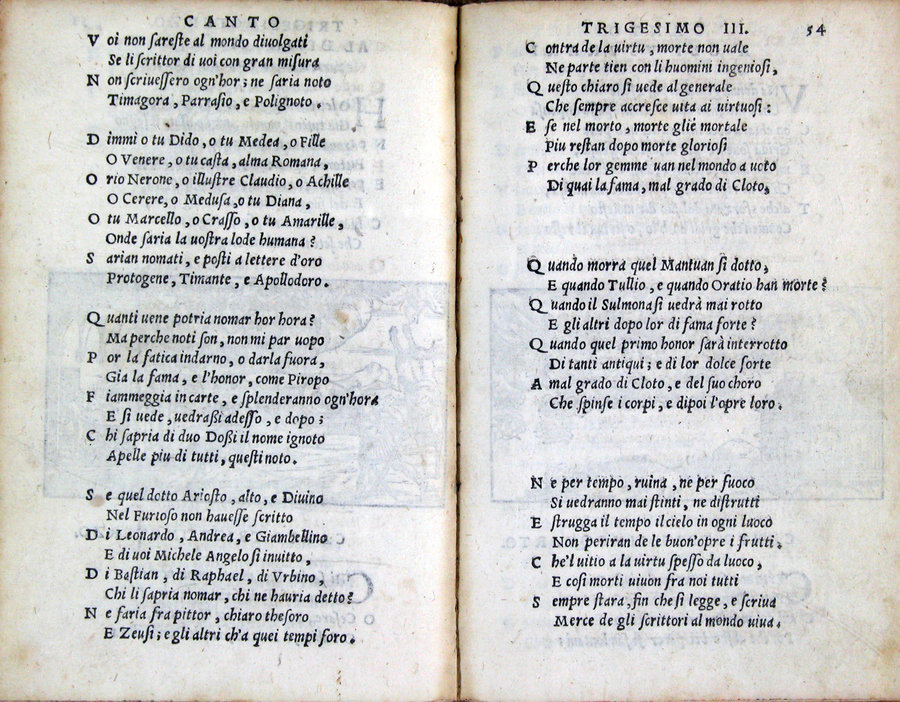 CANTO
V oi non sareste al mondo diuolgati
Se li scrittor di uoi con gran misura
N on scriuessero ogn'hor; ne saria noto
Timagora, Parrasio, e Polignoto.
D immi o tu Dido, o tu Medea, o Fille
O Venere, o tu casta, alma Romana,
O rio Nerone, o illustre Claudio, o Achille
O Cerere, o Medusa, o tu Diana,
O tu Marcello, o Crasso, o tu Amarille,
Onde saria la uostra lode humana?
S arian nomati, e posti a lettere d'oro
Protogene, Timante, e Apollodoro.
Q uanti uene potria nomar hor hora?
Ma perche noti son, non mi par uopo
P or la fatica indarno, o darla fuora,
Gia la fama, e l'honor, come Piropo
F iammeggia in carte, e splenderanno ogn'hora
E si uede, uedraßi adesso, e dopo;
C hi sapria di duo Doßi il nome ignoto
Apelle piu di tutti, questi noto.
S e quel dotto Ariosto, alto, e Diuino
Nel Furioso non hauesse scritto
D i Leonardo, Andrea, e Giambellino
E di uoi Michele Angelo si inuitto,
D i Bastian, di Raphael, di Vrbino,
Chi li sapria nomar, chi ne hauria detto?
N e faria fra pittor, chiaro thesoro
E Zeusi; e gli altri ch'a quei tempi foro.
TRIGESIMO III. 54
C ontra de la uirtu, morte non uale
Ne parte tien con li huomini ingeniosi,
Q uesto chiaro si uede al generale
Che sempre accresce uita ai uirtuosi:
E se nel morto, morte glie mortale
Piu restan dopo morte gloriosi
P erche lor gemme uan nel mondo a uoto
Di quai la fama, mal grado di Cloto,
Q uando morra quel Mantuan si dotto,
E quando Tullio, e quando Oratio han morte?
Q uando il Sulmonasi uedrà mai rotto
E gli altri dopo lor di fama forte?
Q uando quel primo honor sarà interrotto
Di tanti antiqui; e di lor dolce sorte
A mal grado di Cloto, e del suo choro
Che spinse i corpi, e dipoi l'opre loro.
N e per tempo, ruina, ne per fuoco
Si uedranno mai stinti, ne distrutti
E strugga il tempo il cielo in ogni luoco
Non periran de le buon'opre i frutti,
C he'l uitio a la uirtu spesso da luoco,
E cosi morti uiuon fra noi tutti
S empre stara, fin che si legge, e scriua
Merce de gli scrittori al mondo uiua.